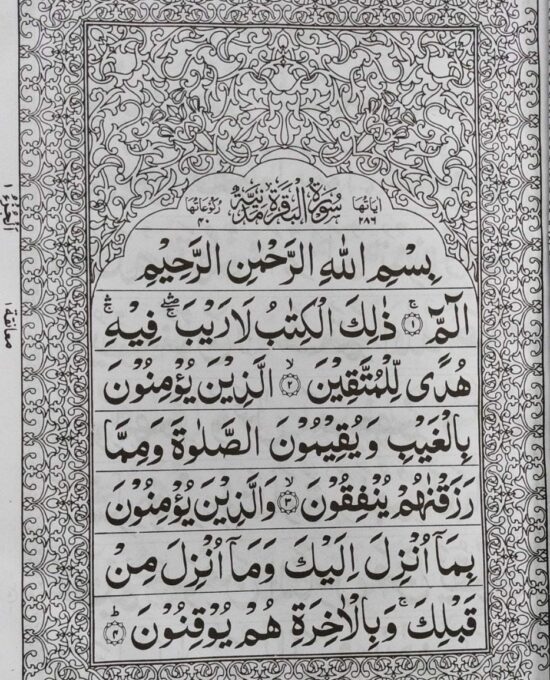 اٰيَاتُهَا ٢٨٦ سُوْرَةُ الْبَقَرَةِ مَدَنِيَّةٌ رُكُوْعَاتُهَا ٤٠
بِسْمِ اللهِ الرَّحْمٰنِ الرَّحِيْمِ
الٓمّٓ ۚ ﴿١﴾ ذٰلِكَ الْكِتٰبُ لَا رَيْبَ ۛۚ فِيْهِ ۛۚ
هُدًى لِّلْمُتَّقِيْنَ ۙ ﴿٢﴾ الَّذِيْنَ يُؤْمِنُوْنَ
بِالْغَيْبِ وَيُقِيْمُوْنَ الصَّلٰوةَ وَمِمَّا
رَزَقْنٰهُمْ يُنْفِقُوْنَ ۙ ﴿٣﴾ وَالَّذِيْنَ يُؤْمِنُوْنَ
بِمَآ اُنْزِلَ اِلَيْكَ وَمَآ اُنْزِلَ مِنْ
قَبْلِكَ ۚ وَبِالْاٰخِرَةِ هُمْ يُوْقِنُوْنَ ؕ ﴿٤﴾
معانقة ١